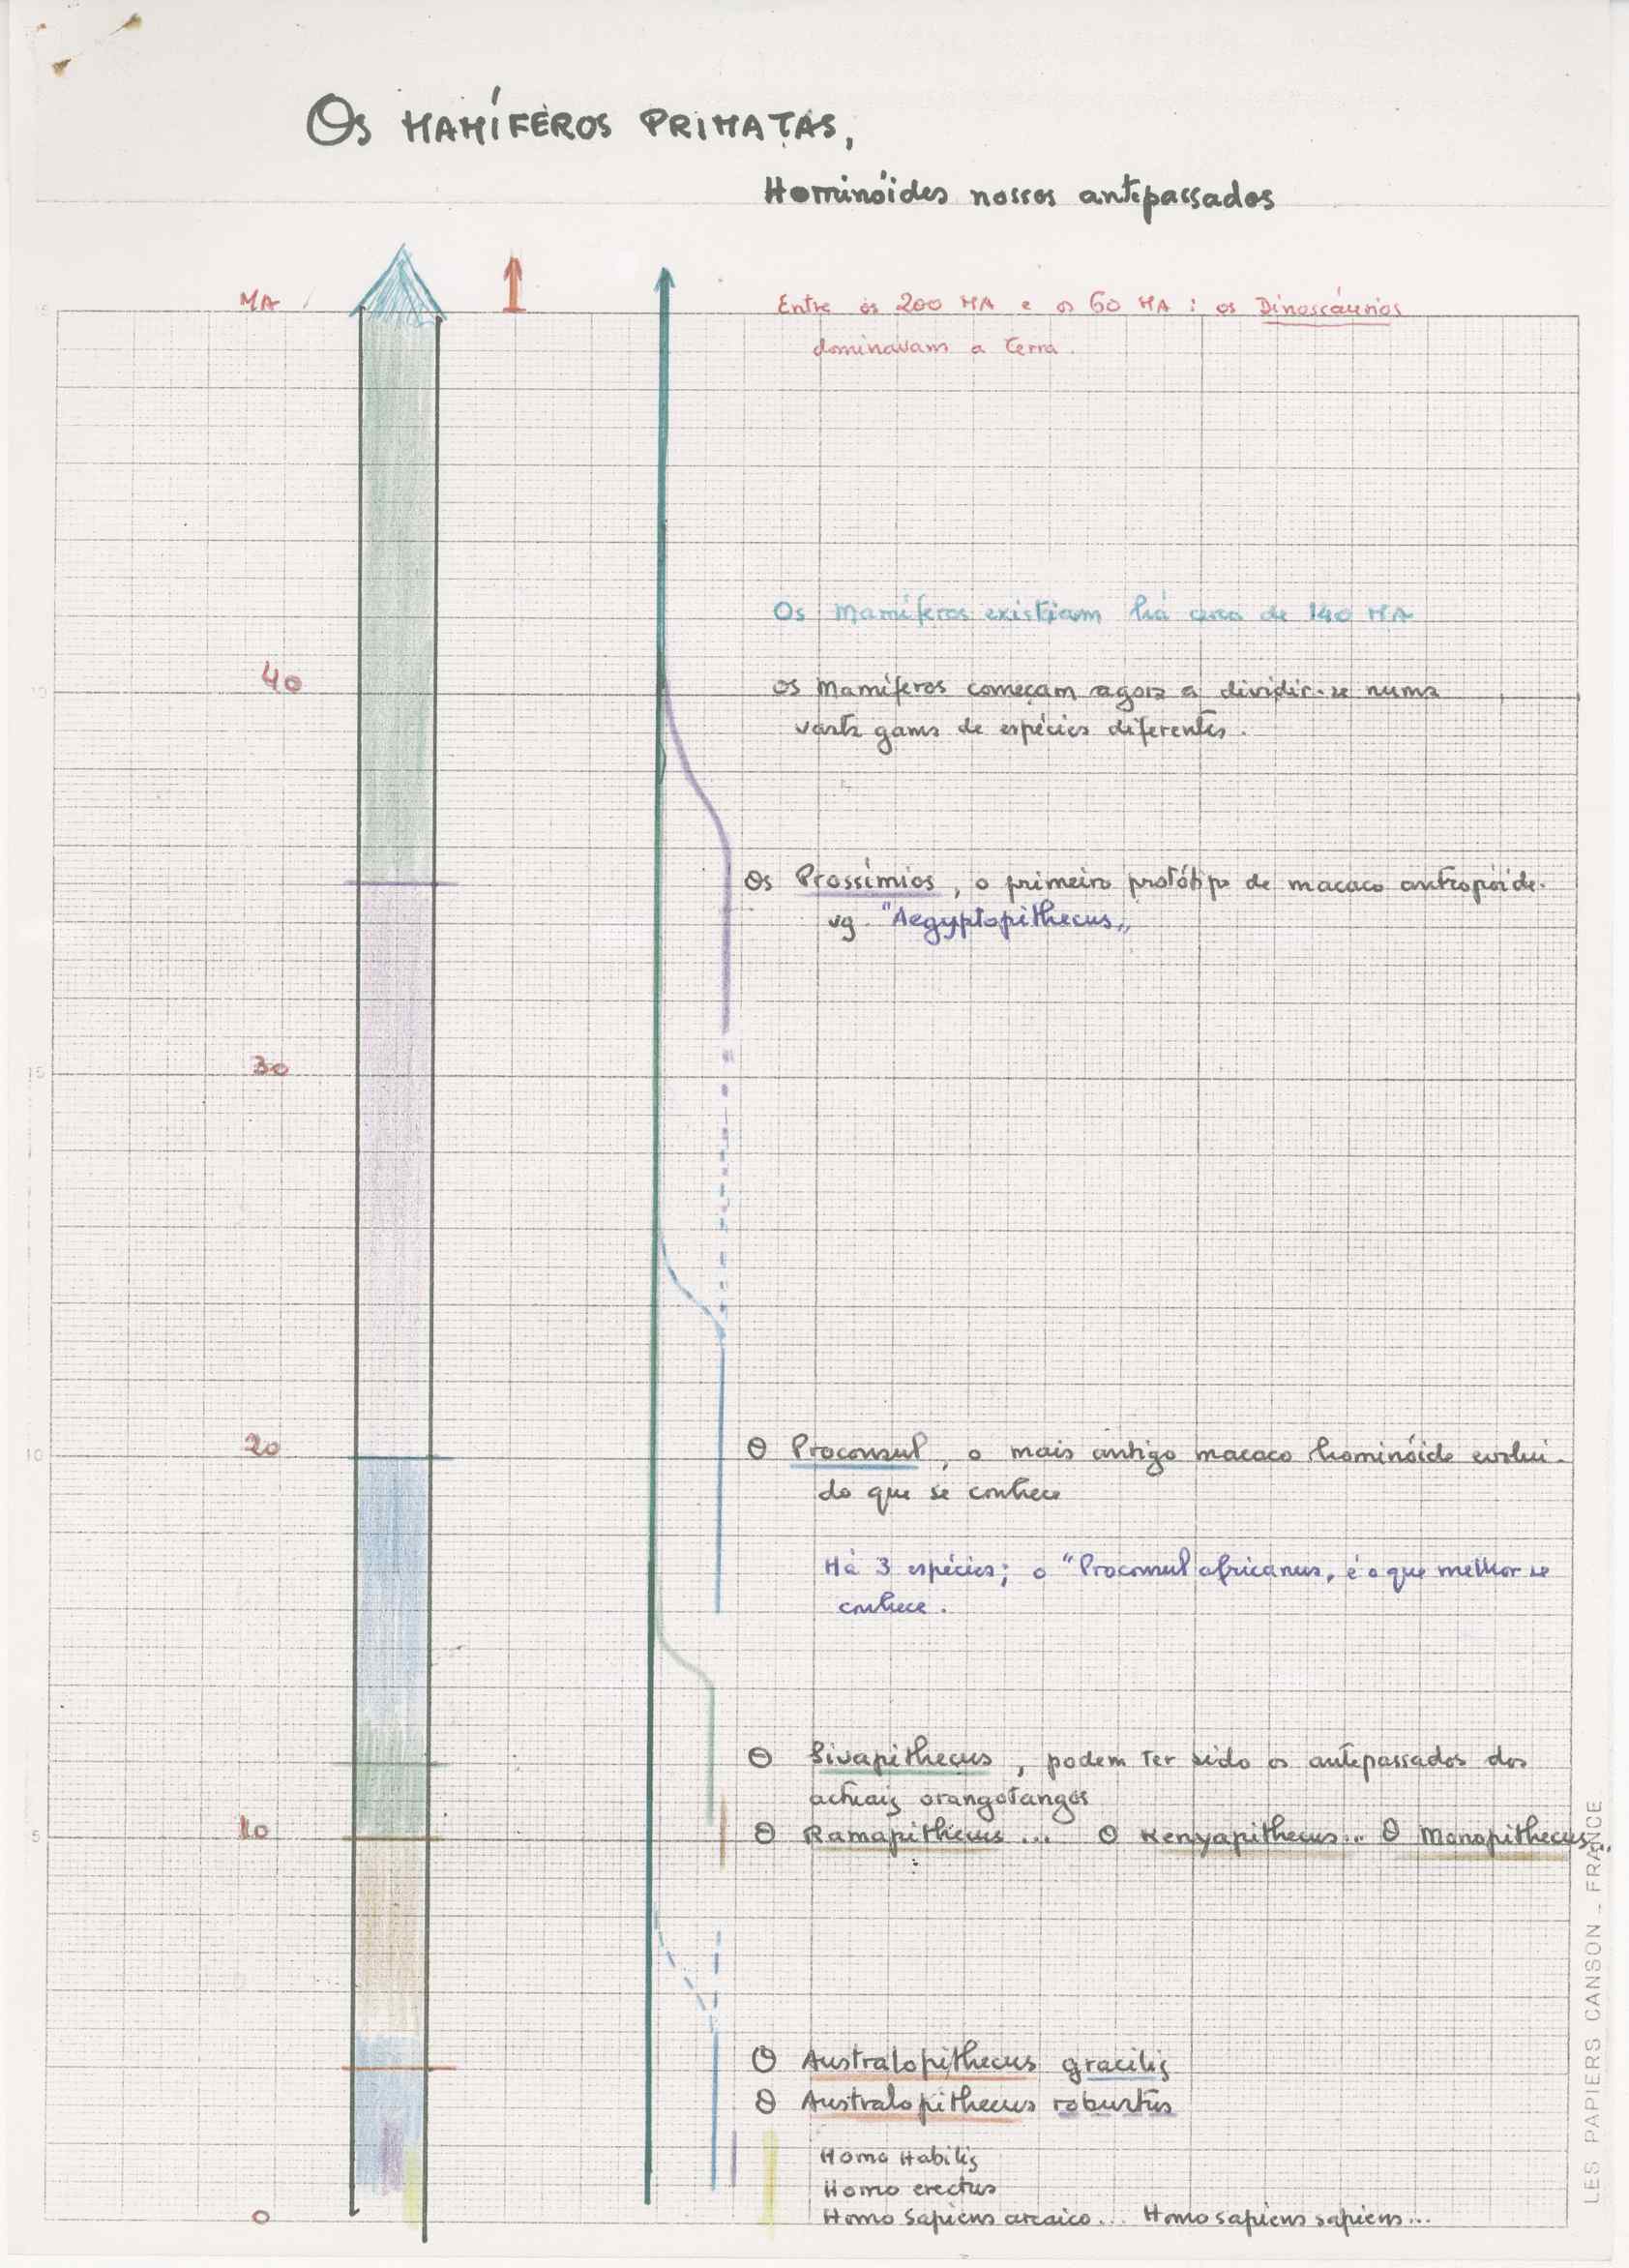 Os MAMÍFEROS PRIMATAS,
Hominóides nossos antepassados
MA
Entre os 200 MA e os 60 MA: os Dinossáurios
dominavam a terra.
Os Mamíferos existiam há cerca de 140 MA
40
Os mamíferos começam agora a dividir-se numa
vasta gama de espécies diferentes.
Os Prossímios, o primeiro protótipo de macaco antropóide.
vg. "Aegyptopithecus"
30
15
20
10
O Proconsul, o mais antigo macaco hominóide evolui-
do que se conhece
Há 3 espécies; o "Proconsul africanus, é o que melhor se
conhece.
O Sivapithecus, podem ter sido os antepassados dos
actuais orangotangos
10
5
O Ramapithecus... O Kenyapithecus... O Monopithecus...
O Australopithecus gracilis
O Australopithecus robustus
Homo Habilis
Homo erectus
0
Homo Sapiens arcaico... Homo sapiens sapiens...
LES PAPIERS CANSON - FRANCE